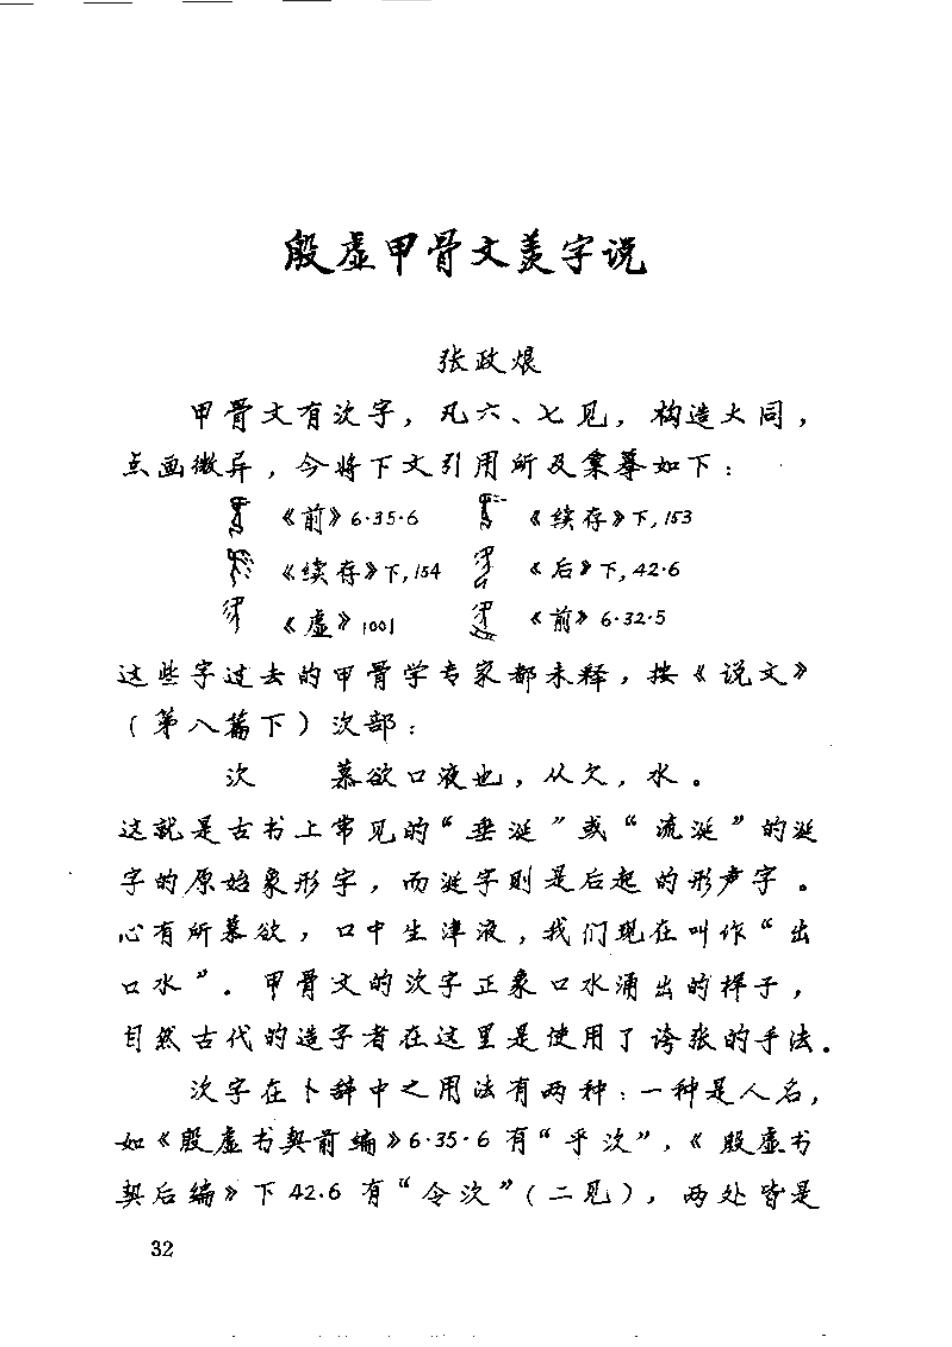 殷虚甲骨文羡字说
张政烺
甲骨文有㳄字，凡六、七见，构造大同，
点画微异，今将下文引用所及彙摹如下：
《前》6·35·6 《续存》下,153
《续存》下,154 《后》下,42·6
《虚》1001 《前》6·32·5
这些字过去的甲骨学专家都未释，按《说文》
(第八篇下) 㳄部：
㳄 慕欲口液也，从欠，水。
这就是古书上常见的“垂涎”或“流涎”的涎
字的原始象形字，而涎字则是后起的形声字。
心有所慕欲，口中生津液，我们现在叫作“出
口水”。甲骨文的㳄字正象口水涌出的样子，
自然古代的造字者在这里是使用了誇张的手法。
㳄字在卜辞中之用法有两种：一种是人名，
如《殷虚书契前编》6·35·6有“乎㳄”，《殷虚书
契后编》下42.6有“令㳄”(二见)，两处皆是
32